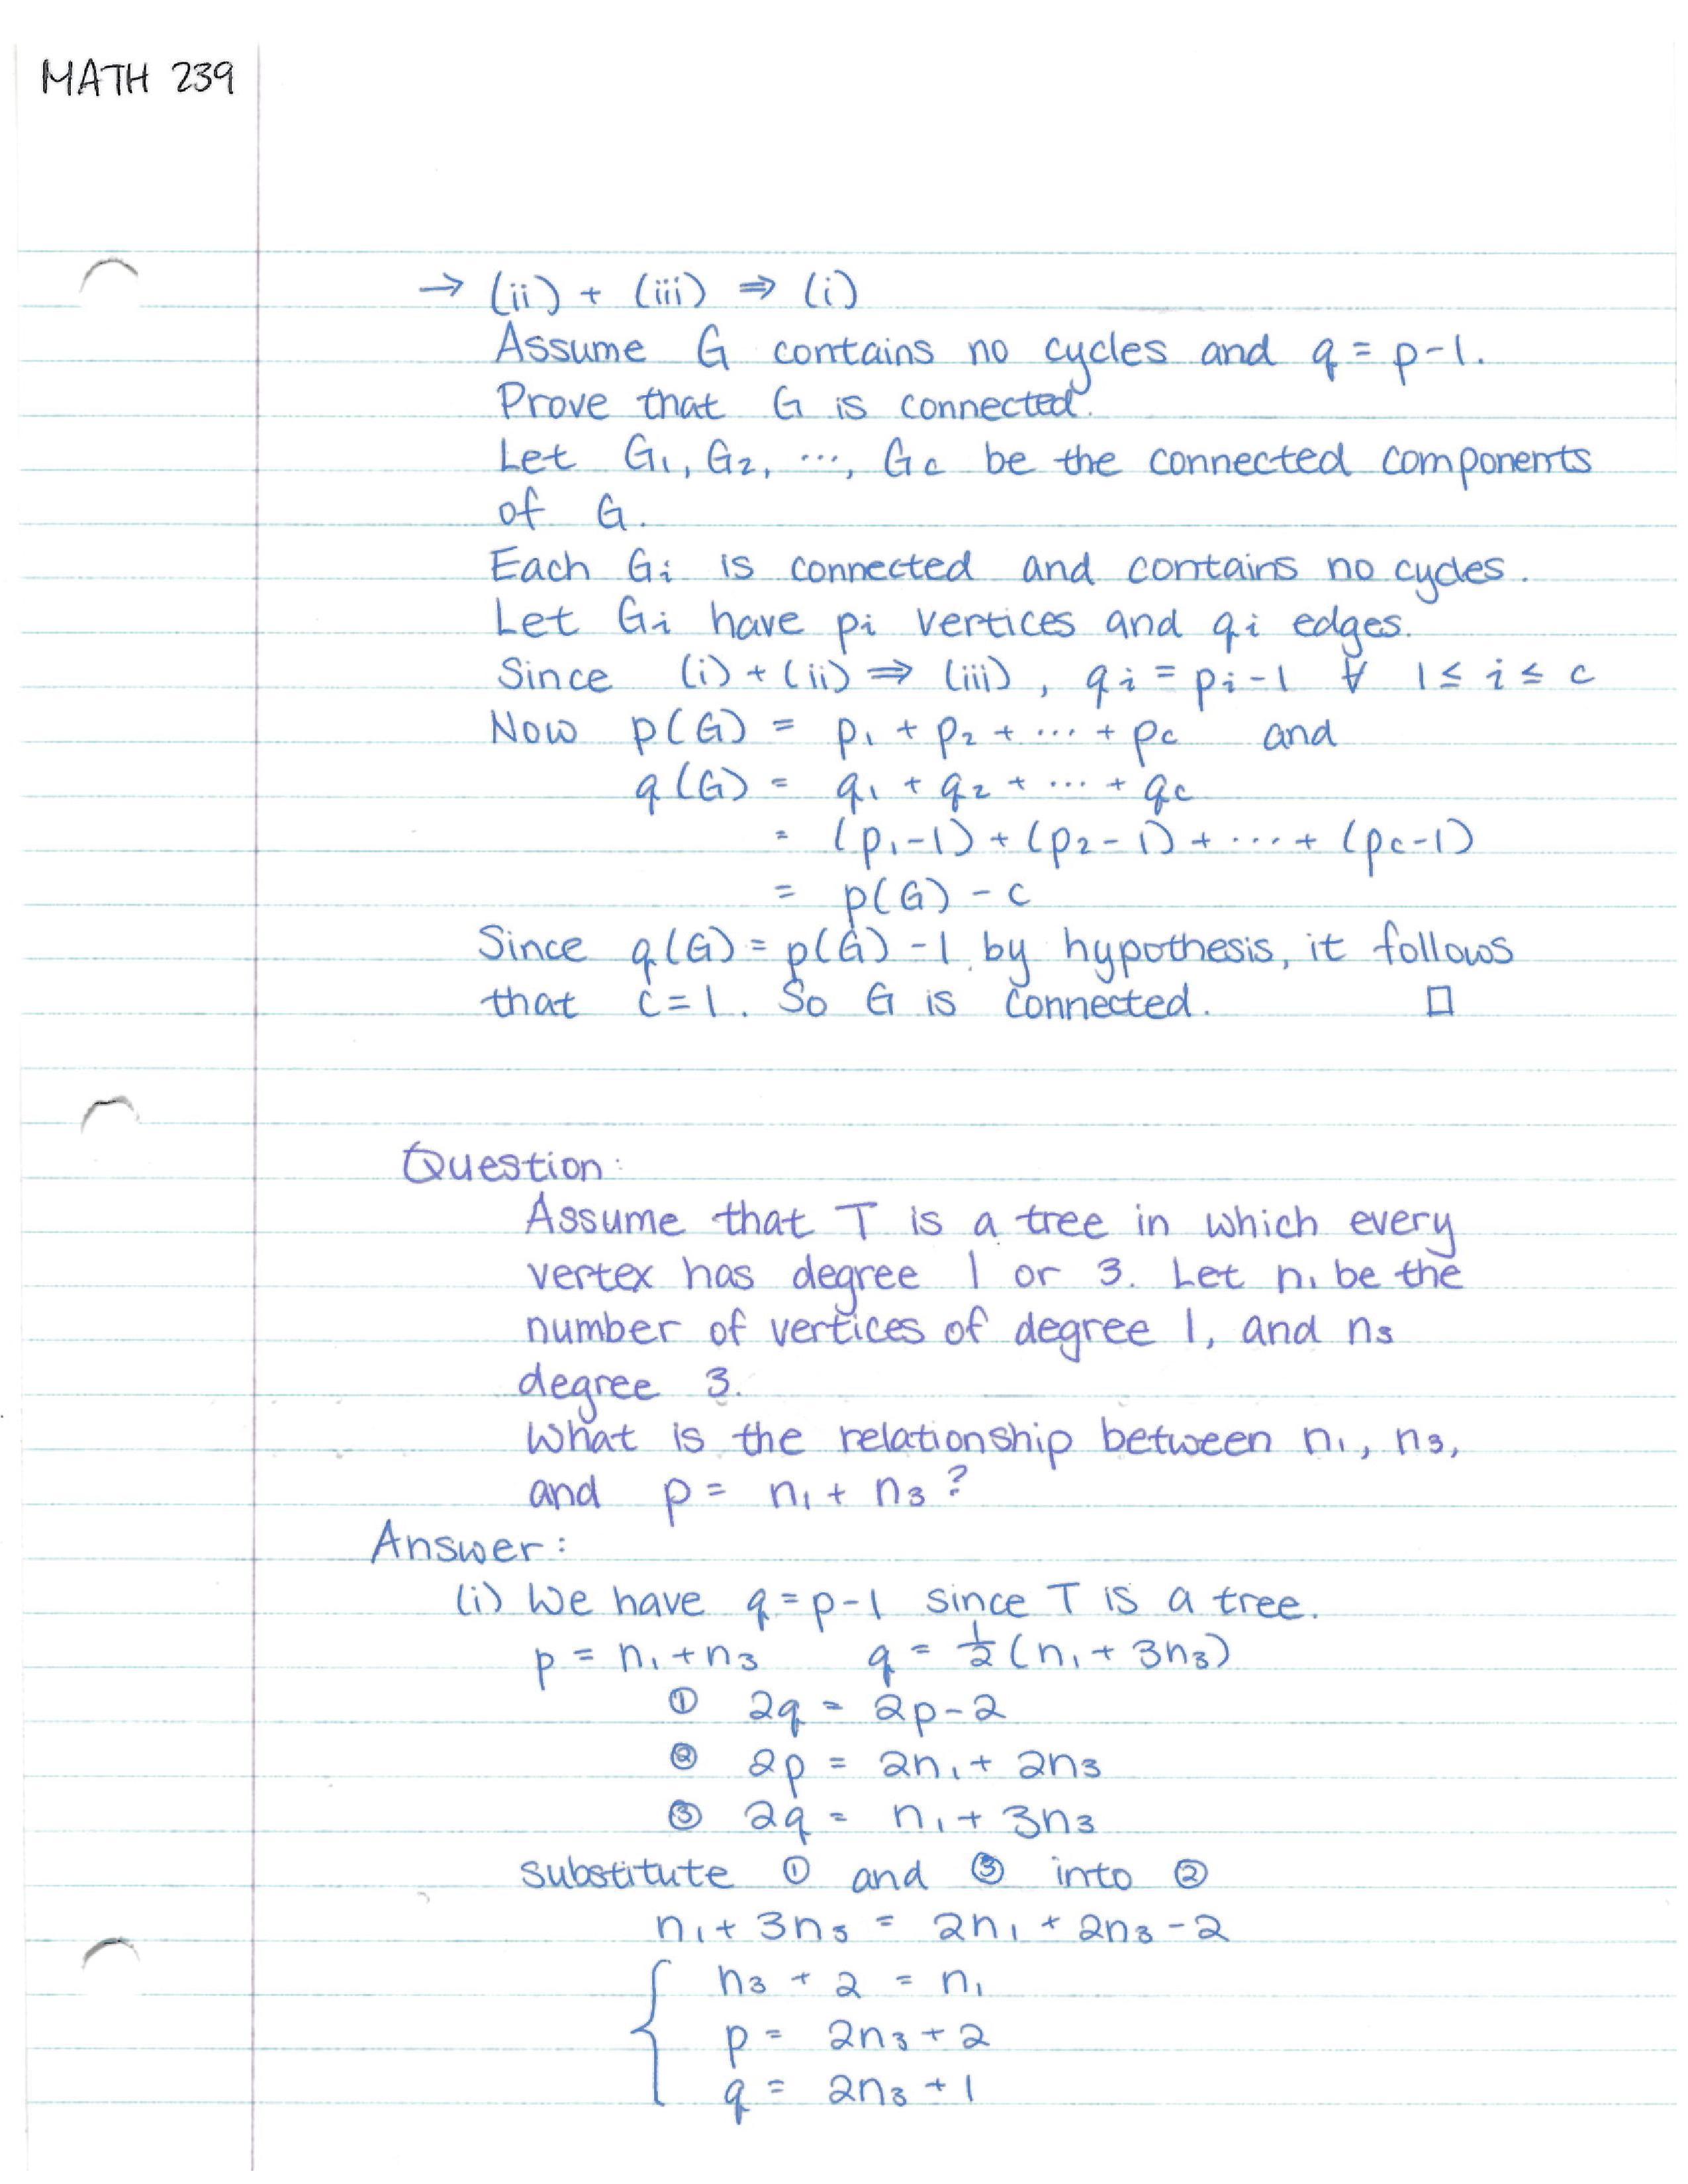 MATH 239
→ (ii) + (iii) ⇒ (i)
Assume G contains no cycles and q = p-1.
Prove that G is connected.
Let G₁, G₂, ..., Gc be the connected components
of G.
Each Gi is connected and contains no cycles.
Let Gi have pi vertices and qi edges.
Since (i) + (ii) ⇒ (iii), qi = pi-1 ∀ 1 ≤ i ≤ c
Now p(G) = p₁ + p₂ + ... + pc and
q(G) = q₁ + q₂ + ... + qc
= (p₁-1) + (p₂-1) + .... + (pc-1)
= p(G) - c
Since q(G) = p(G) -1 by hypothesis, it follows
that c=1. So G is connected. □
Question:
Assume that T is a tree in which every
vertex has degree 1 or 3. Let n₁ be the
number of vertices of degree 1, and n₃
degree 3.
What is the relationship between n₁, n₃,
and p = n₁ + n₃?
Answer:
(i) We have q = p-1 since T is a tree.
p = n₁ + n₃ q = ½(n₁ + 3n₃)
① 2q = 2p-2
② 2p = 2n₁ + 2n₃
③ 2q = n₁ + 3n₃
substitute ① and ③ into ②
n₁ + 3n₃ = 2n₁ + 2n₃ - 2
{ n₃ + 2 = n₁
p = 2n₃ + 2
q = 2n₃ + 1